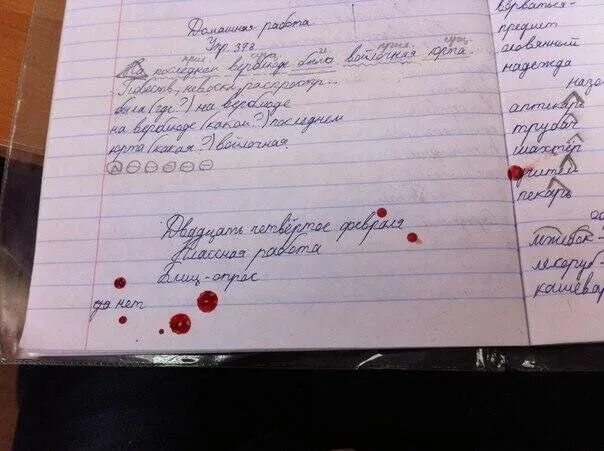 Домашняя работа
Упр. 398
прил. сущ. гл. прил. сущ.
На последнем верблюде была войлочная юрта.
Повеств., невоскл., распростр...
была (где?) на верблюде
на верблюде (каком?) последнем
юрта (какая?) войлочная.
Двадцать четвёртое февраля
Классная работа
Блиц-опрос
да нет
ворваться-
предмет
оловянный
надежда
назо
аптекарь
трубач
шахтёр
учитель
пекарь
лесоруб-
кашевар